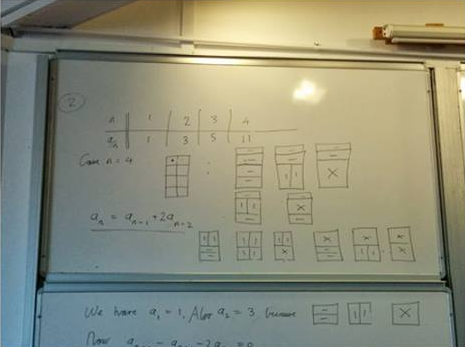 2
n 1 2 3 4
aₙ 1 3 5 11
Case n = 4 :
aₙ = aₙ₋₁ + 2aₙ₋₂
We have a₁ = 1. Also a₂ = 3, because
Now